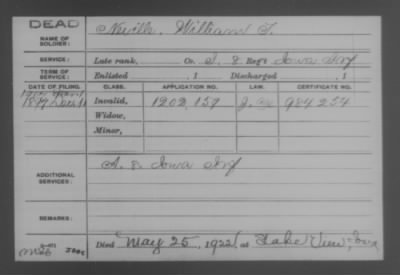 DEAD
NAME OF SOLDIER: Neville, William T.
SERVICE: Late rank, Co. I, 8 Reg't Iowa Inf
TERM OF SERVICE: Enlisted , 1 Discharged , 1
DATE OF FILING. CLASS. APPLICATION NO. LAW. CERTIFICATE NO.
1897 Invalid, 1202,157 984254
Widow,
Minor,
ADDITIONAL SERVICES: A. 8 Iowa Inf
REMARKS:
Died May 25, 1922, at Lake View, Iowa